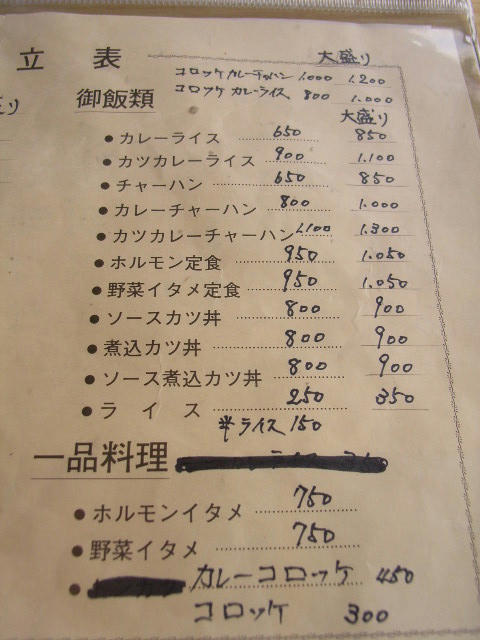 立 表
大盛り
コロッケカレーチャハン 1.000 1.200
コロッケカレーライス 800 1.000
御飯類
大盛り
● カレーライス 650 850
● カツカレーライス 900 1.100
● チャーハン 650 850
● カレーチャーハン 800 1.000
● カツカレーチャーハン 1.100 1.300
● ホルモン定食 950 1.050
● 野菜イタメ定食 950 1.050
● ソースカツ丼 800 900
● 煮込カツ丼 800 900
● ソース煮込カツ丼 800 900
● ライス 250 350
半ライス 150
一品料理
● ホルモンイタメ 750
● 野菜イタメ 750
● カレーコロッケ 450
コロッケ 300